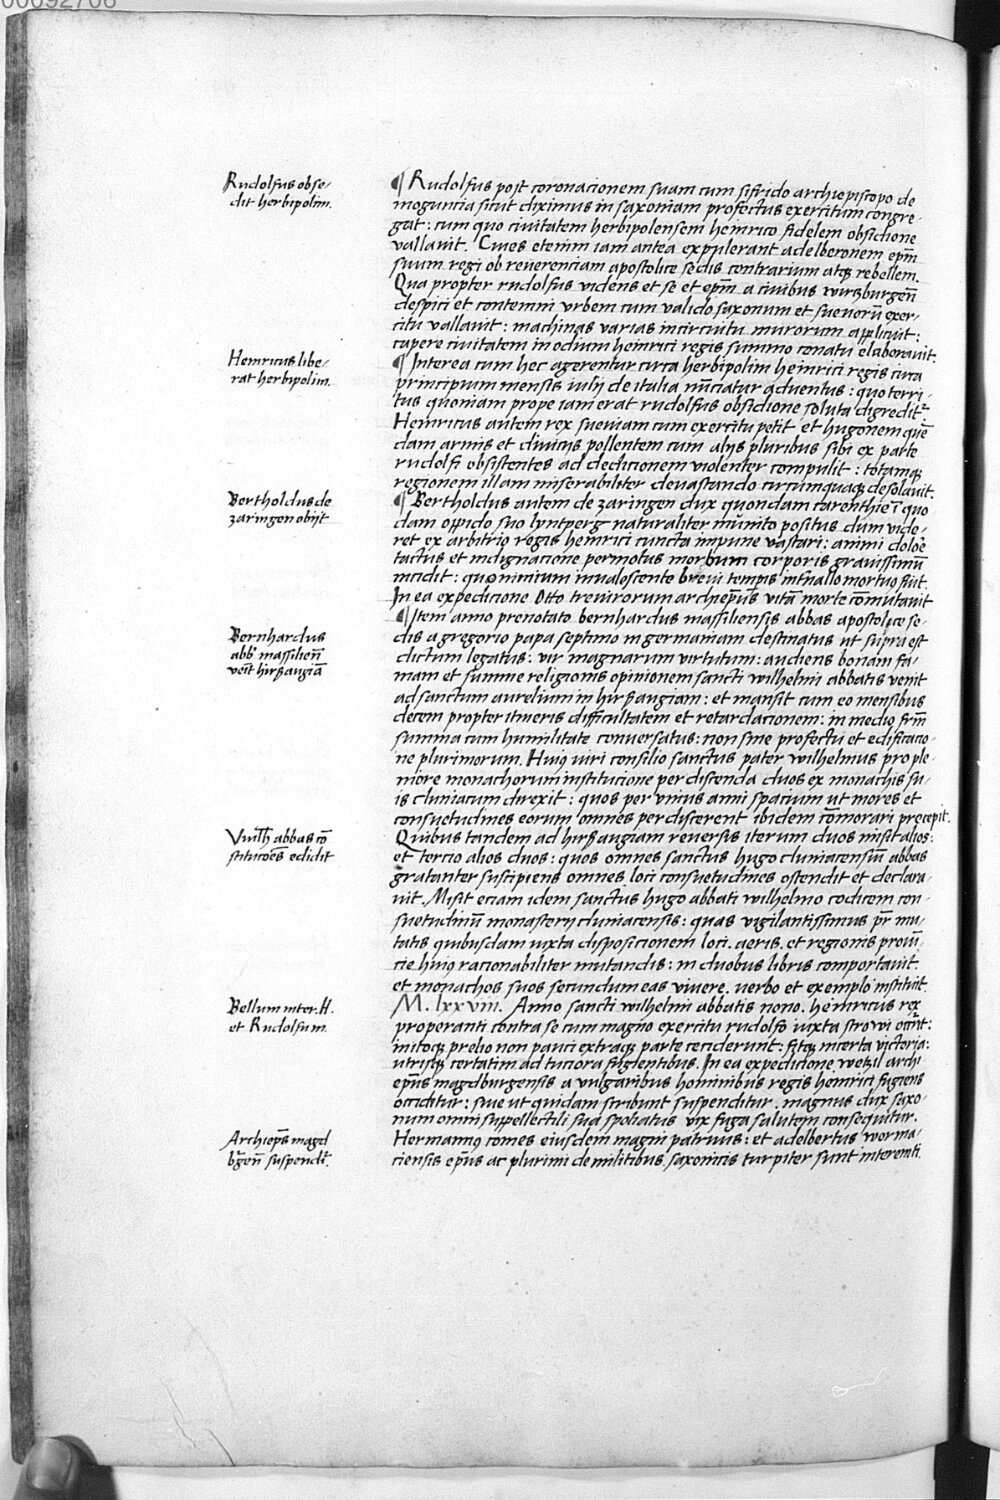 00092706
Rudolfus obse/
dit herbipolim.
¶ Rudolfus post coronacionem suam cum sifrido archiepiscopo de
moguncia sicut diximus in saxoniam profectus exercitum congre/
gat: cum quo ciuitatem herbipolensem heinrico fidelem obsidione
vallauit. Ciues etenim iam antea expulerant adelberonem ep̄m
suum regi ob reuerenciam apostolice sedis contrarium atqꝫ rebellem.
Qua propter rudolfus videns et se et ep̄m a ciuibus wirtzburgen̄
despici et contemni vrbem cum valido saxonum et sueuorū exer/
citu vallauit: machinas varias in circuitu murorum applicuit:
capere ciuitatem in odium heinrici regis summo conatu elaborauit.
Heinricus libe/
rat herbipolim.
¶ Interea cum hec agerentur circa herbipolim heinrici regis circa
principium mensis iulij de italia nūciatur aduentus: quo terri/
tus quoniam prope iam erat rudolfus obsidione soluta digredit᷒.
Heinricus autem rex sueuiam cum exercitu petit et hugonem quē
dam armis et diuicijs pollentem cum alijs pluribus sibi ex parte
rudolfi obsistentes ad dedicionem violenter compulit: totamqꝫ
regionem illam miserabiliter deuastando circumquaqꝫ desolauit.
Bertholdus de
zaringen obijt
¶ Bertholdus autem de zaringen dux quondam carenthie ī quo
dam oppido suo lyntperg naturaliter munito positus dum vide/
ret ex arbitrio regis heinrici cuncta impune vastari: animi dolore
tactus et indignacione permotus morbum corporis grauissimū
incidit: quo nimium inualescente breui temp̄is int̄uallo mortuus fuit.
In ea expedicione Otto treuirorum archiep̄us vitā morte cōmutauit
Bernhardus
abb̄ massilien̄
venit hirßaugiā
¶ Item anno prenotato bernhardus massiliensis abbas apostolice se/
dis a gregorio papa septimo in germaniam destinatus ut supra est
dictum legatus: vir magnarum virtutum: audiens bonam fa/
mam et summe religionis opinionem sancti wilhelmi abbatis venit
ad sanctum aurelium in hirßaugiam: et mansit cum eo mensibus
decem propter itineris difficultatem et retardacionem: in medio fr̄m
summa cum humilitate conuersatus: non sine profectu et edificacio/
ne plurimorum. Huiꝰ viri consilio sanctus pater wilhelmus pro ple/
niore monachorum institucione perdiscenda duos ex monachis su/
is cluniacum direxit: quos per vnius anni spacium ut mores et
consuetudines eorum omnes perdiscerent ibidem cōmorari precepit.
Vuilh̄ abbas cō
stitucōes edidit
Quibus tandem ad hirßaugiam reuersis iterum duos misit alios:
et tercio alios duos: quos omnes sanctus hugo cluniacensiū abbas
gratanter suscipiens omnes loci consuetudines ostendit et declara/
uit. Misit eciam idem sanctus hugo abbati wilhelmo codicem con/
suetudinū monasterij cluniacensis: quas vigilantissimus pr̄ mu/
tatis quibusdam iuxta disposicionem loci. aeris. et regionis prouī/
cie huiꝰ racionabiliter mutandis: in duobus libris comportauit.
et monachos suos secundum eas viuere. verbo et exemplo instituit.
Bellum inter .H.
et Rudolfum.
M. lxxviii. Anno sancti wilhelmi abbatis nono. heinricus rex
properanti contra se cum magno exercitu rudolfo iuxta strowi occīt:
initoqꝫ prelio non pauci ex utraqꝫ parte ceciderunt: fitqꝫ incerta victoria:
utrisqꝫ certatim ad tuciora fugientibus. In ea expedicione wetzil archi
ep̄us magdburgensis a vulgaribus hominibus regis heinrici fugiens
occiditur: siue ut quidam scribunt suspenditur. magnus dux saxo/
num omni suppellectili sua spoliatus vix fuga salutem consequitur.
Archiep̄s magd
bḡen̄ suspendit᷒.
Hermannꝰ comes eiusdem magni patruus: et adelbertus worma/
ciensis ep̄us ac plurimi de militibus saxonicis turpiter sunt interemti.